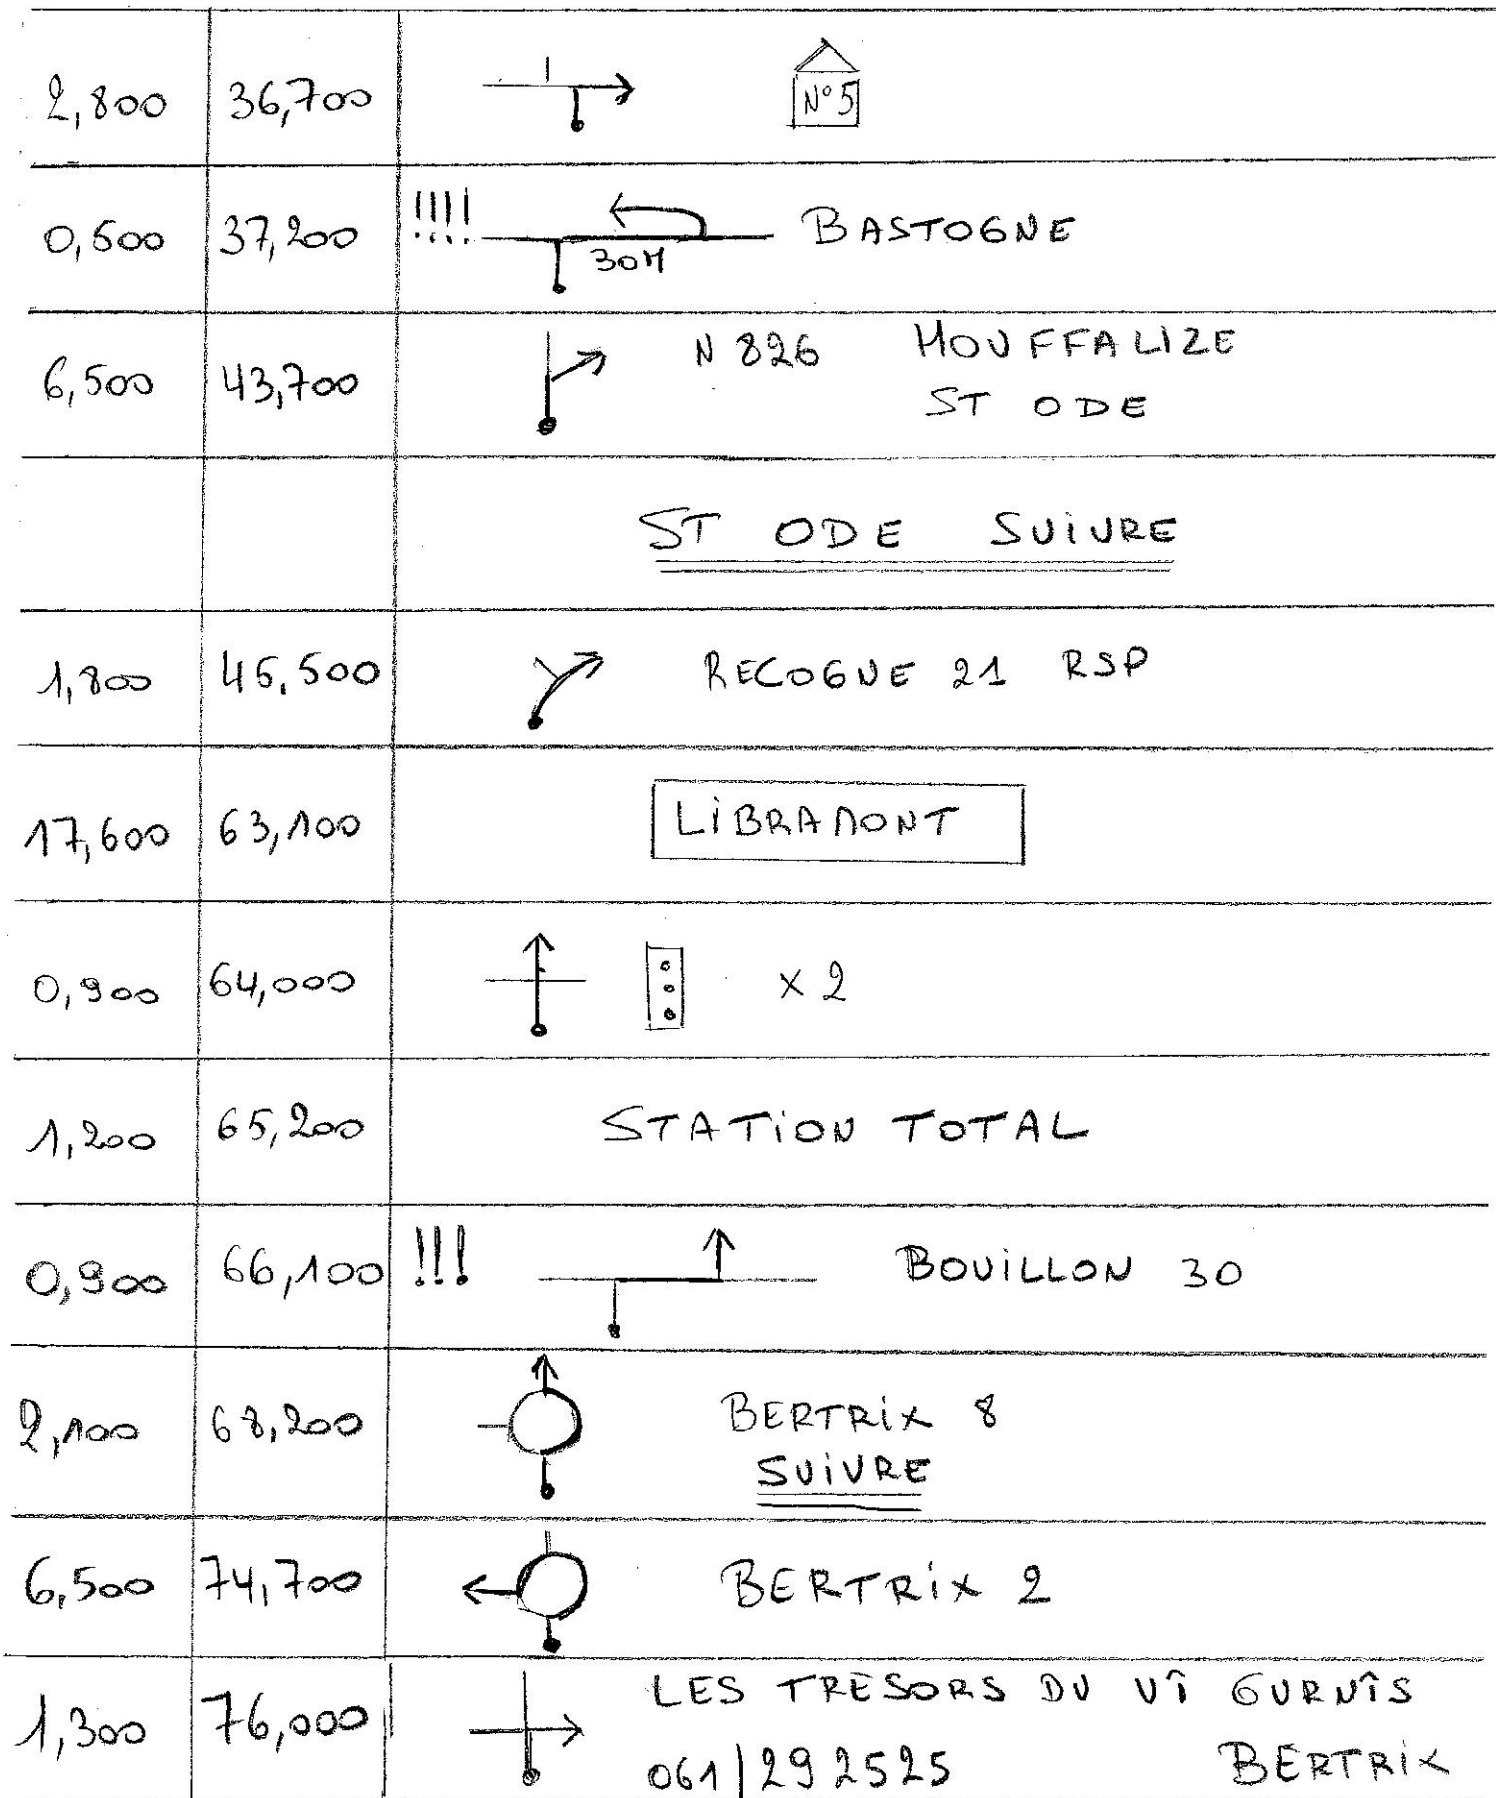 2,800 36,700 N°5
0,500 37,200 !!!! 30M BASTOGNE
6,500 43,700 N 826 HOUFFALIZE
ST ODE
ST ODE SUIVRE
1,800 45,500 RECOGNE 21 RSP
17,600 63,100 LiBRAMONT
0,900 64,000 x 2
1,200 65,200 STATiON TOTAL
0,900 66,100 !!! BOUiLLON 30
2,100 68,200 BERTRiX 8
SUiVRE
6,500 74,700 BERTRiX 2
1,300 76,000 LES TRESORS DU VÎ GURNÎS
061/292525 BERTRIX